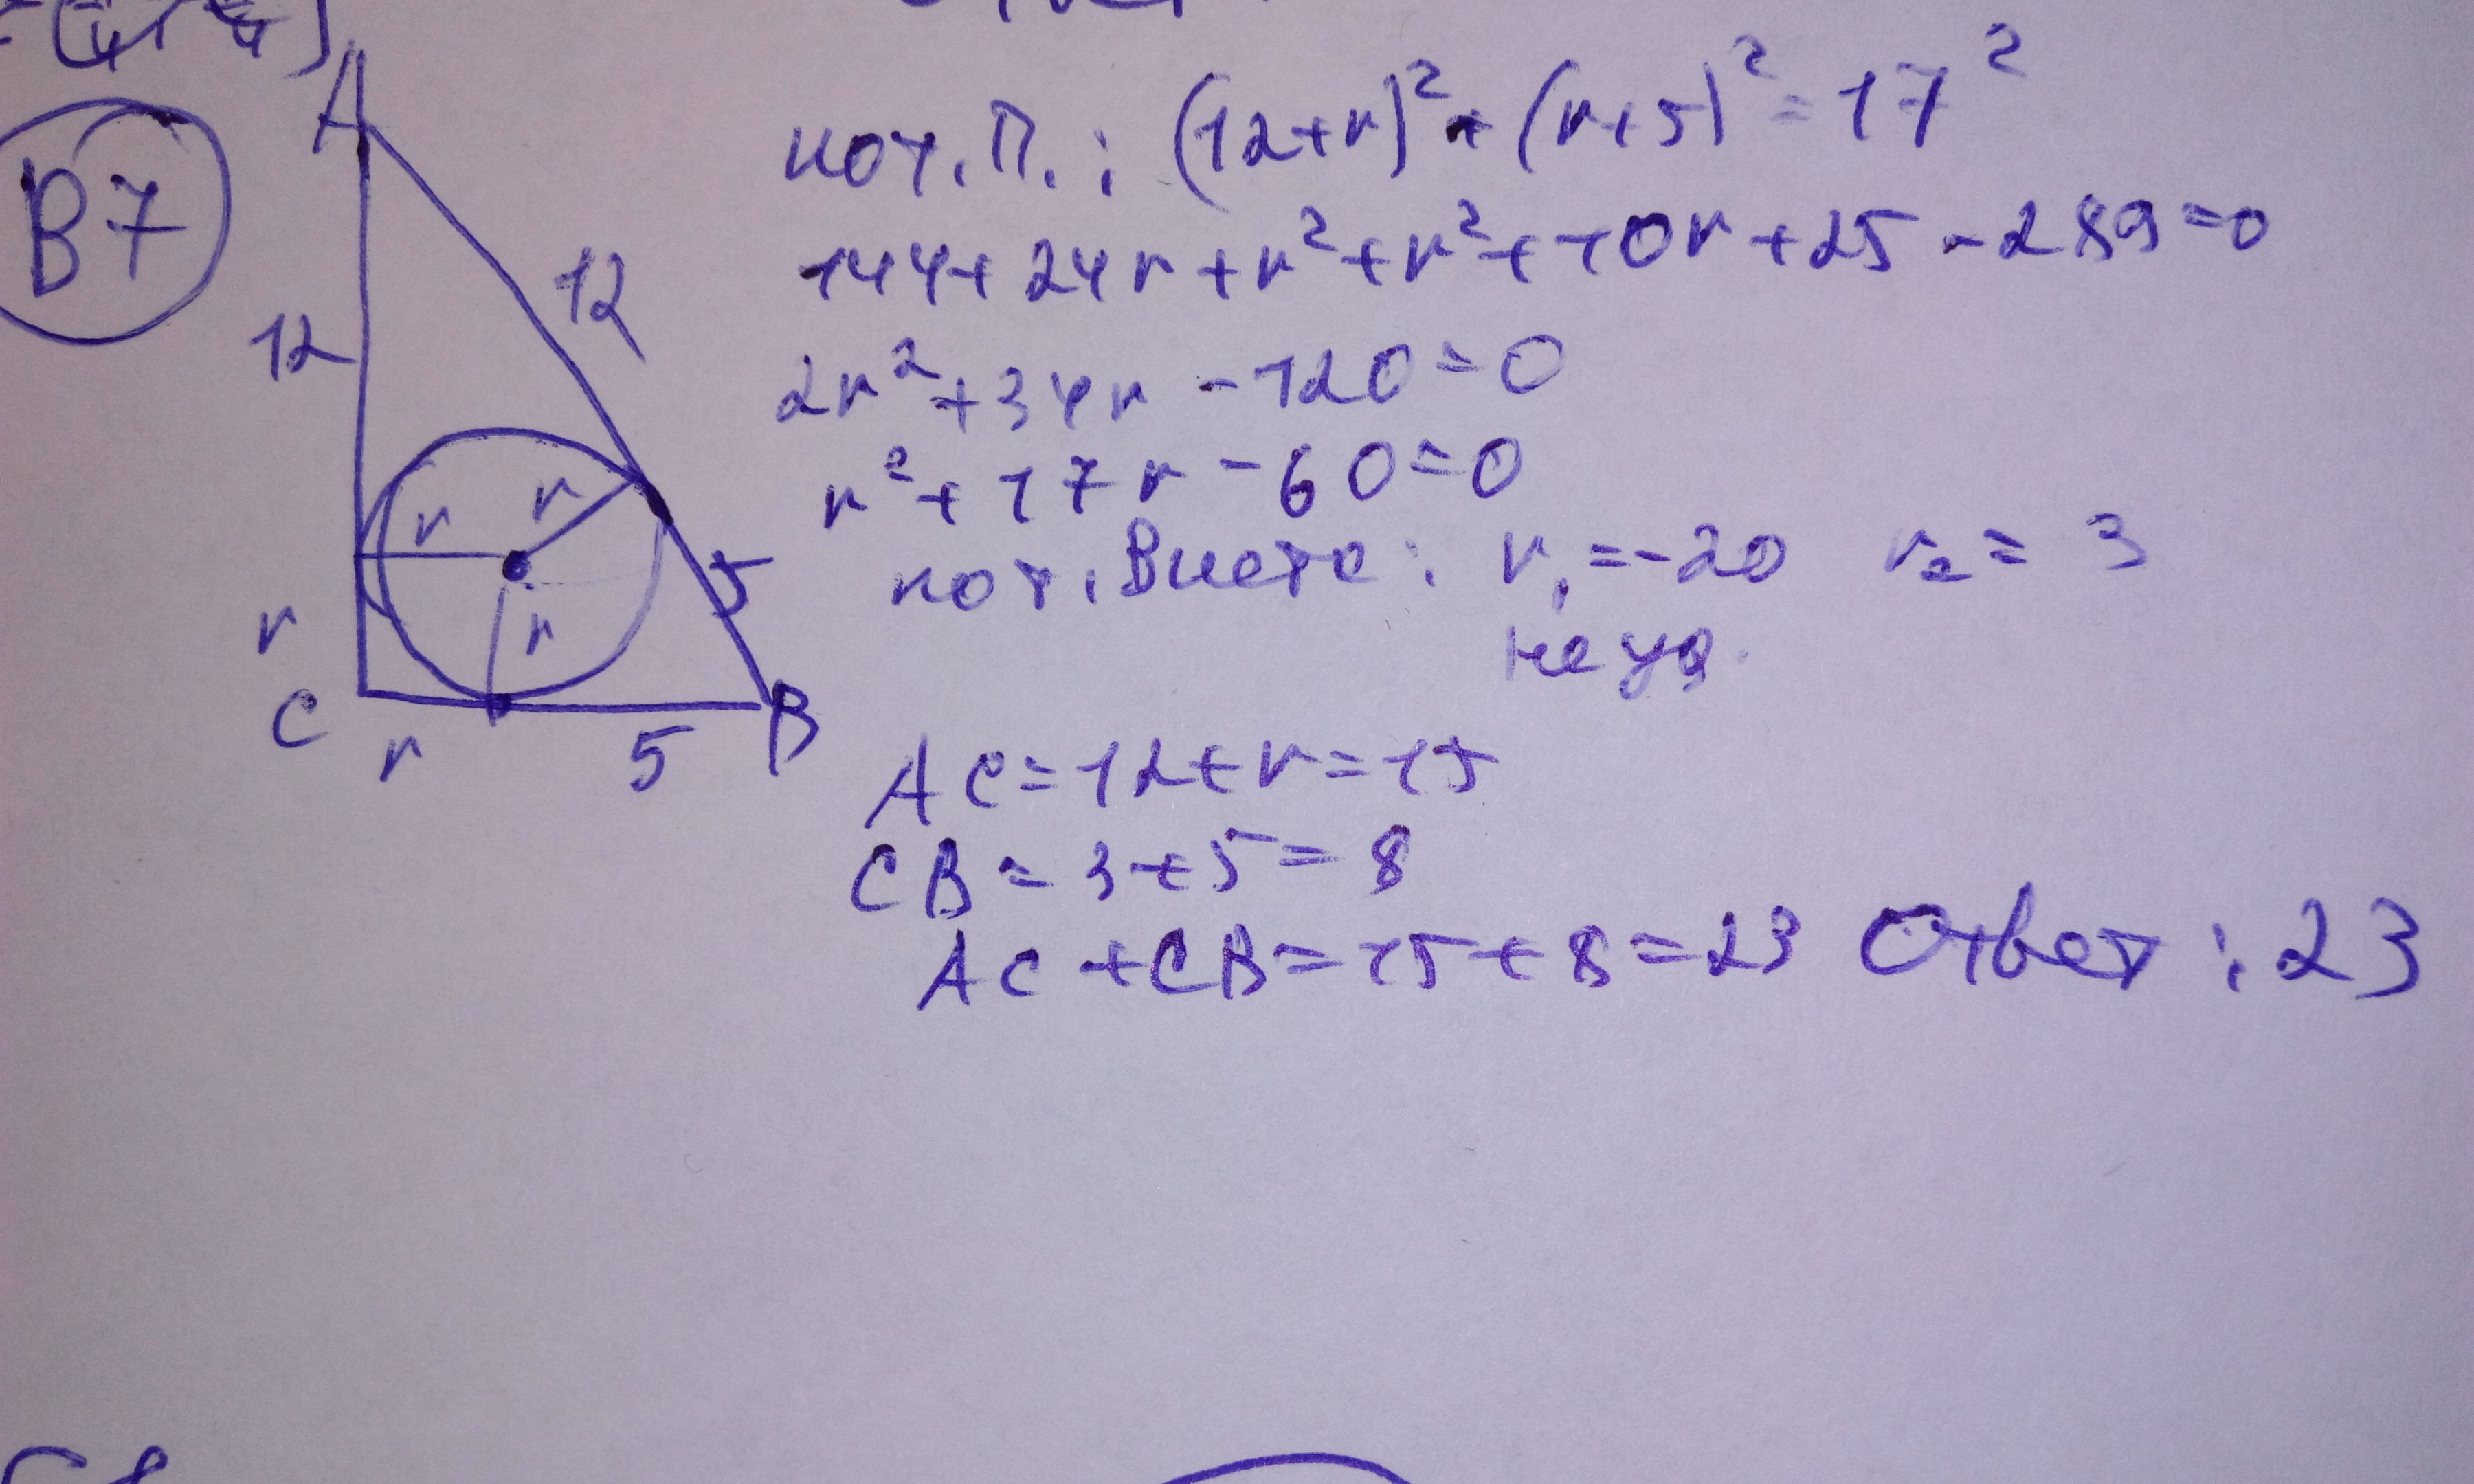 B7
A
12
12
r
r
r
r
5
C
r
5
B
по т. П.: (12+r)²+(r+5)²=17²
144+24r+r²+r²+10r+25-289=0
2r²+34r-120=0
r²+17r-60=0
по т. Виета: r₁=-20 r₂=3
не уд.
AC=12+r=15
CB=3+5=8
AC+CB=15+8=23 Ответ: 23